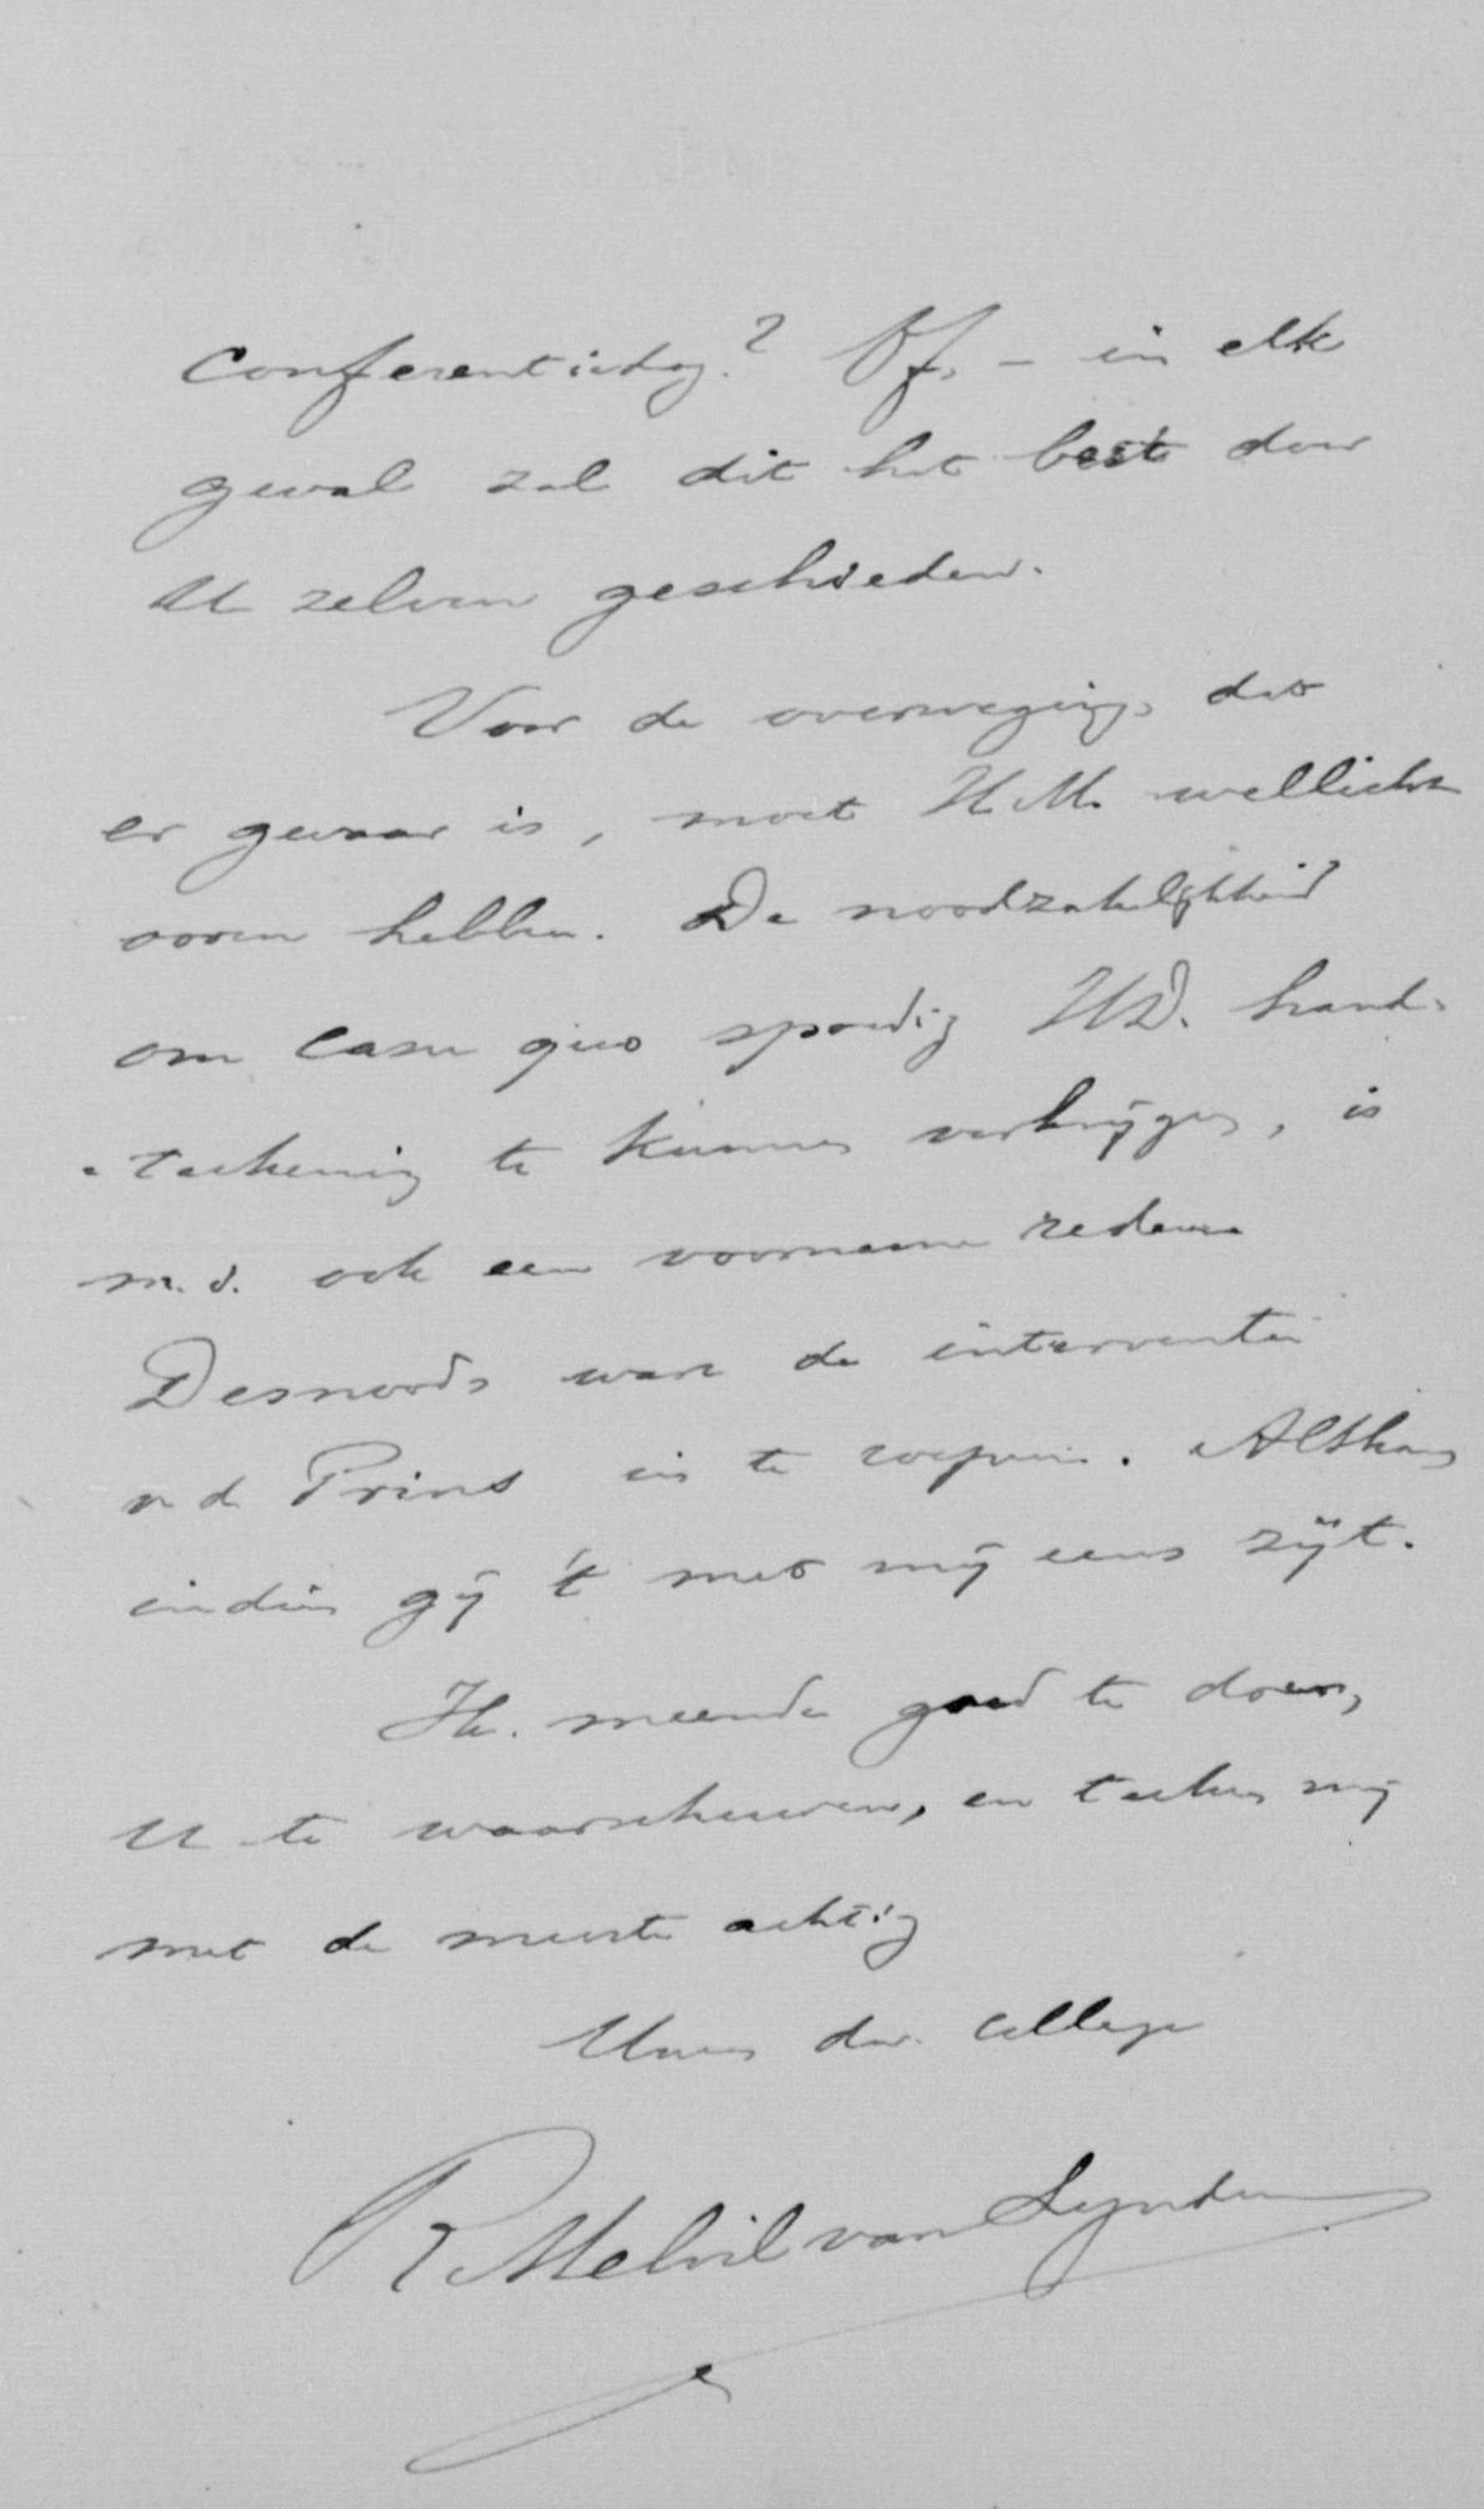 Conferentiedag? Of, – in elk
geval zal dit het best door
U zelven geschieden.
Voor de overweging, dat
er gevaar is, moet H.M. wellicht
ooren hebben. De noodzakelijkheid
om casu quo spoedig HD. hand-
-teekening te kunnen verkrijgen, is
m.i. ook een voorname reden
Desnoods ware de interventie
v d Prins in te roepen. Althans
indien gij 't met mij eens zijt.
Ik meende goed te doen,
U te waarschuwen, en teeken mij
met de meeste achting
Uwen dw. collega
R Melvil van Lynden